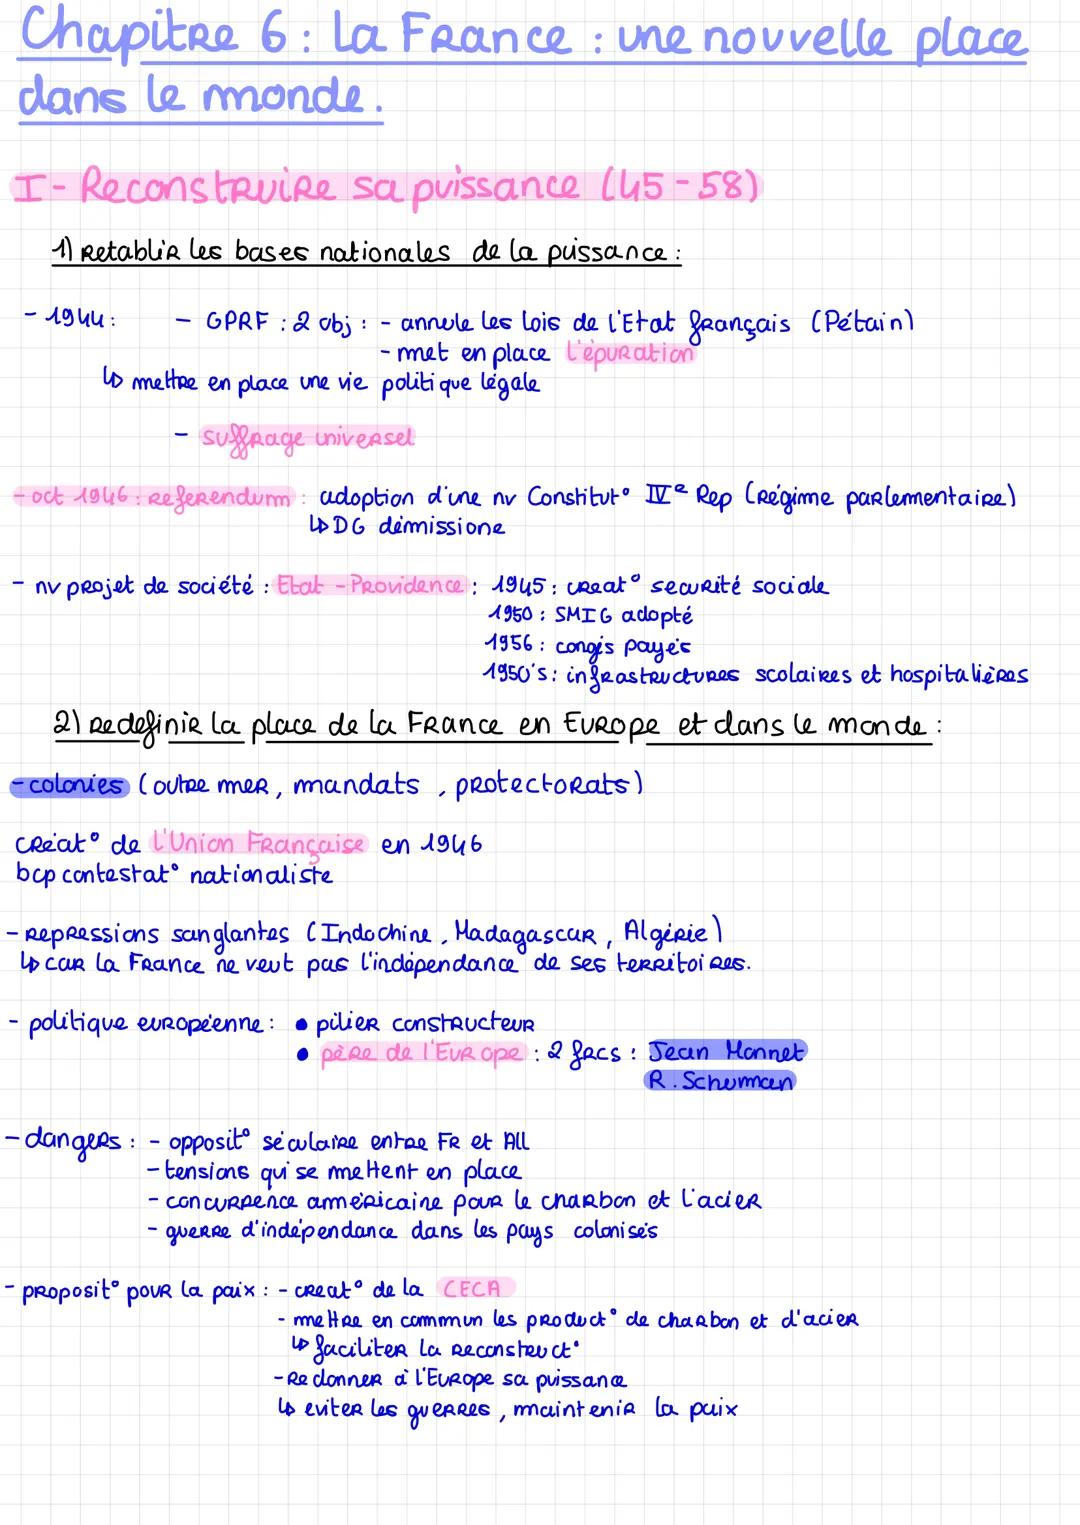 Chapitre 6 : la France : une nouvelle place
dans le monde.
I - Reconstruire sa puissance (45 - 58)
1) retablir les bases nationales de la puissance :
- 1944 : - GPRF : 2 obj : - annule les lois de l'Etat français (Pétain)
- met en place l'épuration
↳ mettre en place une vie politique légale
- suffrage universel
- oct 1946 : referendum : adoption d'une nv Constitut° IVe Rep (Régime parlementaire)
↳ DG démissione
- nv projet de société : Etat - Providence : 1945 : creat° securité sociale
1950 : SMIG adopté
1956 : congés payés
1950's : infrastructures scolaires et hospitalières
2) redefinir la place de la France en Europe et dans le monde :
- colonies (outre mer, mandats, protectorats)
créat° de l'Union Française en 1946
bcp contestat° nationaliste
- repressions sanglantes (Indochine, Madagascar, Algérie)
↳ car la France ne veut pas l'indépendance de ses territoires.
- politique européenne : • pilier constructeur
• père de l'Europe : 2 facs : Jean Monnet
R. Schuman
- dangers : - opposit° séculaire entre FR et All
- tensions qui se mettent en place
- concurrence américaine pour le charbon et l'acier
- guerre d'indépendance dans les pays colonisés
- proposit° pour la paix : - creat° de la CECA
- mettre en commun les product° de charbon et d'acier
↳ faciliter la reconstruct°
- Redonner à l'Europe sa puissance
↳ eviter les guerres, maintenir la paix